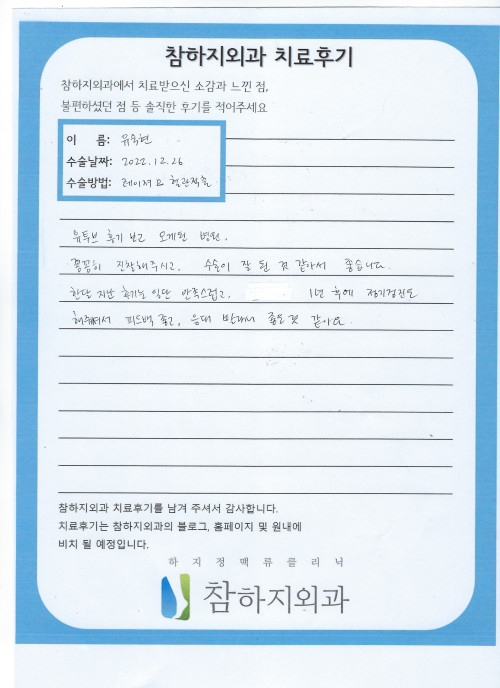 참하지외과 치료후기
참하지외과에서 치료받으신 소감과 느낀 점,
불편하셨던 점 등 솔직한 후기를 적어주세요
이 름: 유옥현
수술날짜: 2022.12.26
수술방법: 레이저요 혈관적출
유투브 후기 보고 오게된 병원.
꼼꼼히 진찰해주시고, 수술이 잘 된 것 같아서 좋습니다.
한달 지난 후기는 일단 만족스럽고, 1년 후에 정기검진도
해주셔서 피드백 좋고, 응대 받대서 좋은것 같아요.
참하지외과 치료후기를 남겨 주셔서 감사합니다.
치료후기는 참하지외과의 블로그, 홈페이지 및 원내에
비치 될 예정입니다.
하지정맥류클리닉
참하지외과